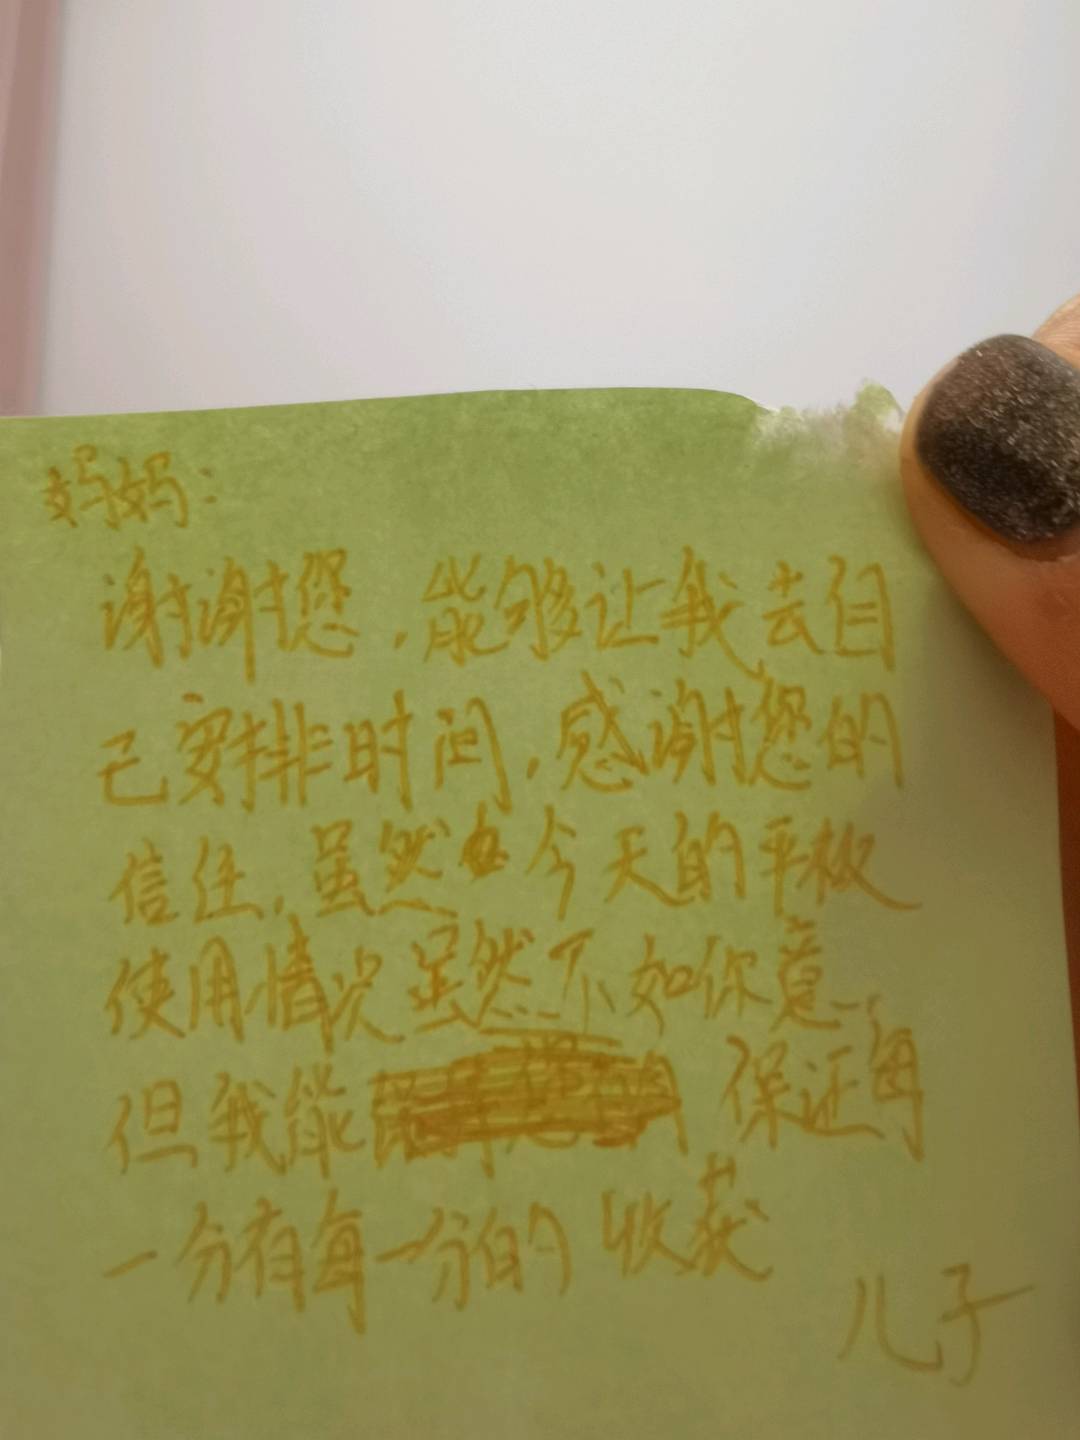 妈妈：
谢谢您，能够让我去自
己安排时间，感谢您的
信任，虽然今天的平板
使用情况虽然不如你意，
但我能 保证每
一分有每一分的收获
儿子